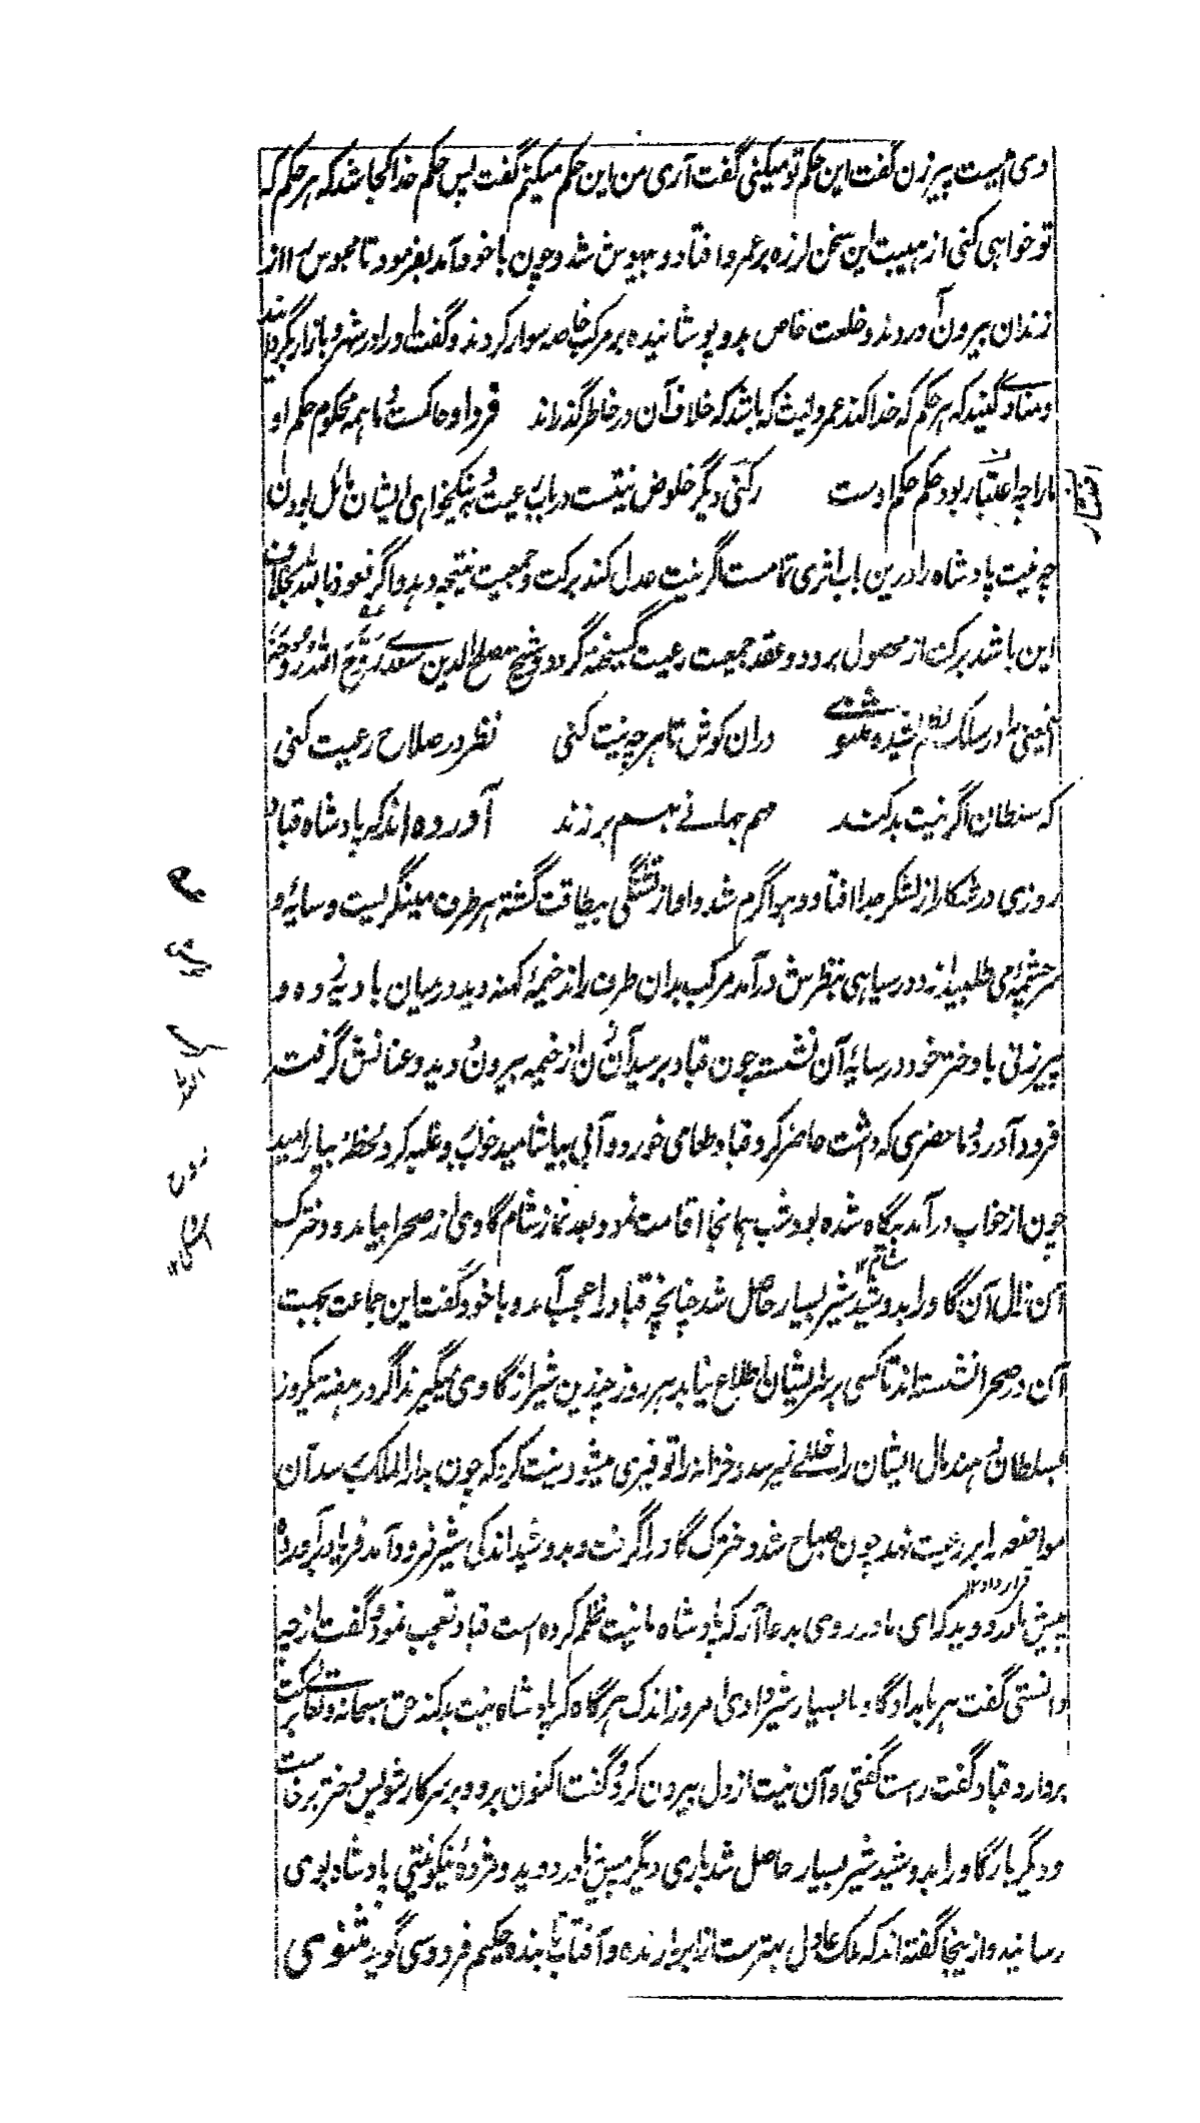 وی اینست پیرزن گفت این حکم تو میکنی گفت آری من این حکم میکنم گفت پس حکم خدا کجا شد که هر حکم که
تو خواهی کنی از هیبت این سخن لرزه بر عمرو افتاد و بیهوش شد و چون با خود آمد بفرمود تا محبوس را از
زندان بیرون آوردند و خلعت خاص بدو پوشانیده بر مرکب خاصه سوار کردند و گفت او را در شهر و بازار بگردانند
و منادی کنید که هر حکم که خدا کند عمرو لیث که باشد که خلاف آن در خاطر گذراند فرد او حاکمست و ما همه محکوم حکم او
ما را چه اعتبار بود حکم حکم اوست رکنی دیگر خلوص نیتست در باب رعیت و به نیکخواهی ایشان مائل بودن
چه نیت پادشاه را درین باب اثری تمامست اگر نیت عدل کند برکت و جمعیت نتیجه دهد و اگر نعوذ بالله بخلاف
این باشد برکت از محصول برود و عقد جمعیت رعیت گسیخته گردد و شیخ مصلح الدین سعدی روح الله روحه
این معنی را در سلک نظم کشیده مثنوی دران کوش تا هر چه نیت کنی نظر در صلاح رعیت کنی
که سلطان اگر نیت بد کند همه جهانی بهم برزند آورده اند که پادشاه قباد
روزی در شکار از لشکر جدا افتاد و هوا گرم شد و او از تشنگی بیطاقت گشته هر طرف مینگریست و سایهٔ و
سرچشمهٔ می طلبید از دور سیاهی بنظرش درآمد مرکب بدان طرف راند خیمهٔ کهنه دید در میان بادیه زده و
پیرزنی با دختر خود در سایهٔ آن نشسته چون قباد برسید آن زن از خیمه بیرون دوید و عنانش گرفت
فرود آورد و ما حضری که داشت حاضر کرد قباد طعامی خورد و آبی بیاشامید خواب بر و غلبه کرد لحظهٔ بیارامید
چون از خواب درآمد بیگاه شده بود شب همانجا اقامت نمود بعد نماز شام گاوی از صحرا بیامد و دخترک
آن زال آن گاو را بدوشید شیر بسیار حاصل شد چنانچه قباد را عجب آمد و با خود گفت این جماعت بجهت
آن در صحرا نشسته اند تا کسی بر سر ایشان اطلاع نیابد هر روز چندین شیر از گاوی میگیرند اگر در هفته یکروز
بسلطان دهند مال ایشان را خللی نمیرسد و خزانه را توفیری میشود نیت کرد که چون بدار الملک رسد آن
مواضعه را بر رعیت نهد چون صباح شد دخترک گاو را گرفت و بدوشید اندکی شیر فرود آمد فریاد برآورد و
قرارداد ۱۲
پیش مادر دوید که ای مادر روی بدعا آر که پادشاه ما نیت ظلم کرده است قباد تعجب نمود و گفت از چه
دانستی گفت هر بامداد گاو ما بسیار شیر دادی امروز اندک هرگاه که پادشاه نیت بد کند حق سبحانه و تعالی برکت
بردارد قباد گفت راست گفتی و آن نیت از دل بیرون کرد و گفت اکنون برو و بر سر کار شو پس دختر برخاست
و دیگر بار گاو را بدوشید شیر بسیار حاصل شد باری دیگر پیش مادر دوید و مژدهٔ نیکو نیتی پادشاه بوی
رسانید و از ینجا گفته اند که ملک عادل بهترست از ابر بارنده و آفتاب تابنده حکیم فردوسی گوید مثنوی